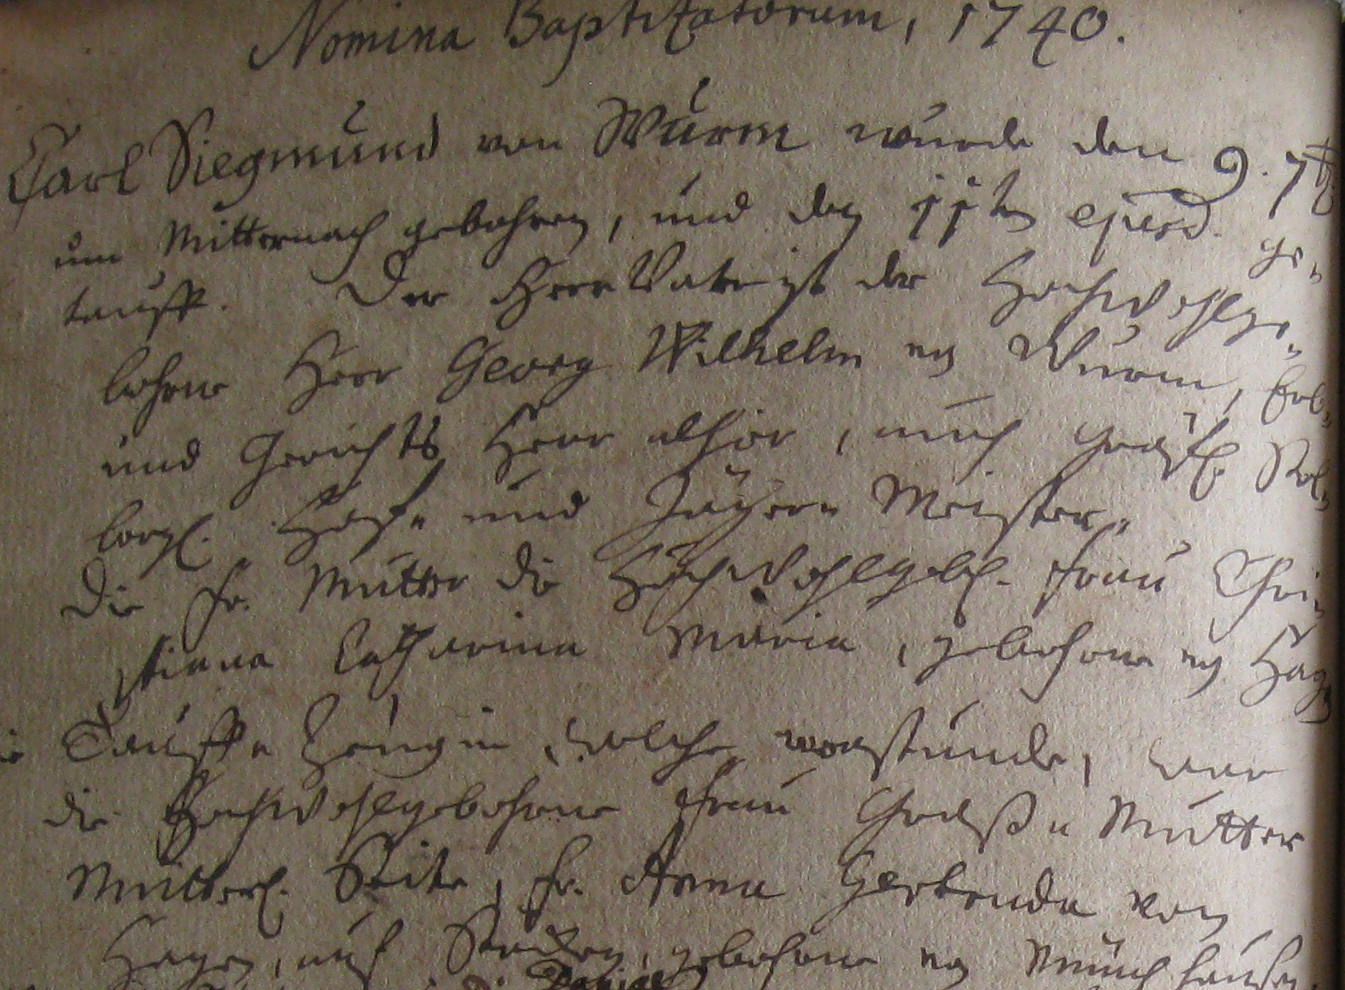 Nomina Baptizatorum, 1740.
Carl Siegmund von Wurm wurde den 9. 7br.
um Mitternach gebohren, und den 11ten ejusd. ge-
taufft. Der Herr Vater ist der Hochwohlge-
bohrne Herr Georg Wilhelm von Wurm, Erb-
und Gerichts Herr alhier, auch Gräfl. Stol-
bergl. Hoff- und Jägern Meister.
Die Fr. Mutter die Hochwohlgeb. Frau Chri-
stiana Catharina Maria, gebohrne von Hagen
Tauff Zeugin, welche vorstunde, war
die Hochwohlgebohrne Frau Groß Mutter
Mütterl. Seite, Fr. Anna Gertruda von
Hagen, auf gebohrne von Münchhausen